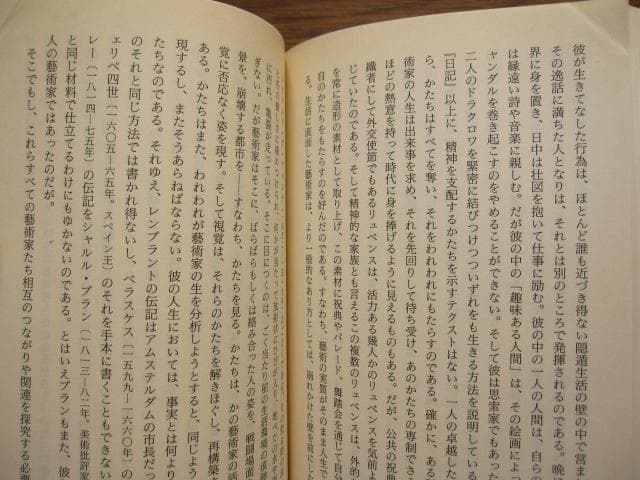 彼が生きてなした行為は、ほとんど誰も近づき得ない隠遁生活の壁の中で営ま
その逸話に満ちた人となりは、それとは別のところで発揮されるのである。晩に
界に身を置き、日中は壮図を抱いて仕事に励む。彼の中の一人の人間は、自らの
は縁遠い詩や音楽に親しむ。だが彼の中の「趣味ある人間」は、その絵画によ
ャンダルを巻き起こすのをやめることができない。そして彼は思索家でもあった
二人のドラクロワを緊密に結びつけつついずれをも生きる方法を説明している
『日記』以上に、精神を支配するかたちを示すテクストはない。一人の卓越した
ら、かたちはすべてを奪い、それをわれわれにもたらすのである。確かに、ある
術家の人生は出来事を求め、それを先回りして待ち受け、あのかたちの専制でさ
ほどの熱意を持って時代に身を捧げるように見えるものもある。だが、公共の祝典
織者にして外交使節でもあるリュベンスは、活力ある幾人かのリュベンスを気前よ
じていたのである。そして精神的な家族とも言えるこの複数のリュベンスは、外的
を常に造形の素材として取り上げ、この素材に祝典やパレード、舞踏会を通じて自分
自のかたちをもたらすのを好んだのである。すなわち、藝術の実質がそのまま人生で
る。生活に直面した藝術家は、より一般的なあり方としては、「崩れかけた壁を
に汚れ、亀裂が走っている。そこに目につくのは、ごく当たり前の生活
ぎない。だが藝術家はそこに、ばらばらもしくは絡み合った人の姿を、戦闘場面
景を、崩壊する都市を――すなわち、かたちを見る。かたちは、かの藝術家の活
覚に否応なく姿を現す。そして視覚は、それらのかたちを解きほぐし、再構築
ある。かたちはまた、われわれが藝術家の生を分析しようとすると、同じよう
現するし、またそうあらねばならない。彼の人生においては、事実とは何より
たちなのである。それゆえ、レンブラントの伝記はアムステルダムの市長だっ
のそれと同じ方法では書かれ得ないし、ベラスケス〔一五九九―一六六〇年〕の
ェリペ四世〔一六〇五―六五年。スペイン王〕のそれを手本に書くこともできない
レー〔一八一四―七五年〕の伝記をシャルル・ブラン〔一八一三―八二年。美術批評家
と同じ材料で仕立てるわけにもゆかないのである。とはいえブランもまた、彼
人の藝術家ではあったのだが。
そこでもし、これらすべての藝術家たち相互のつながりや関連を探究する必要